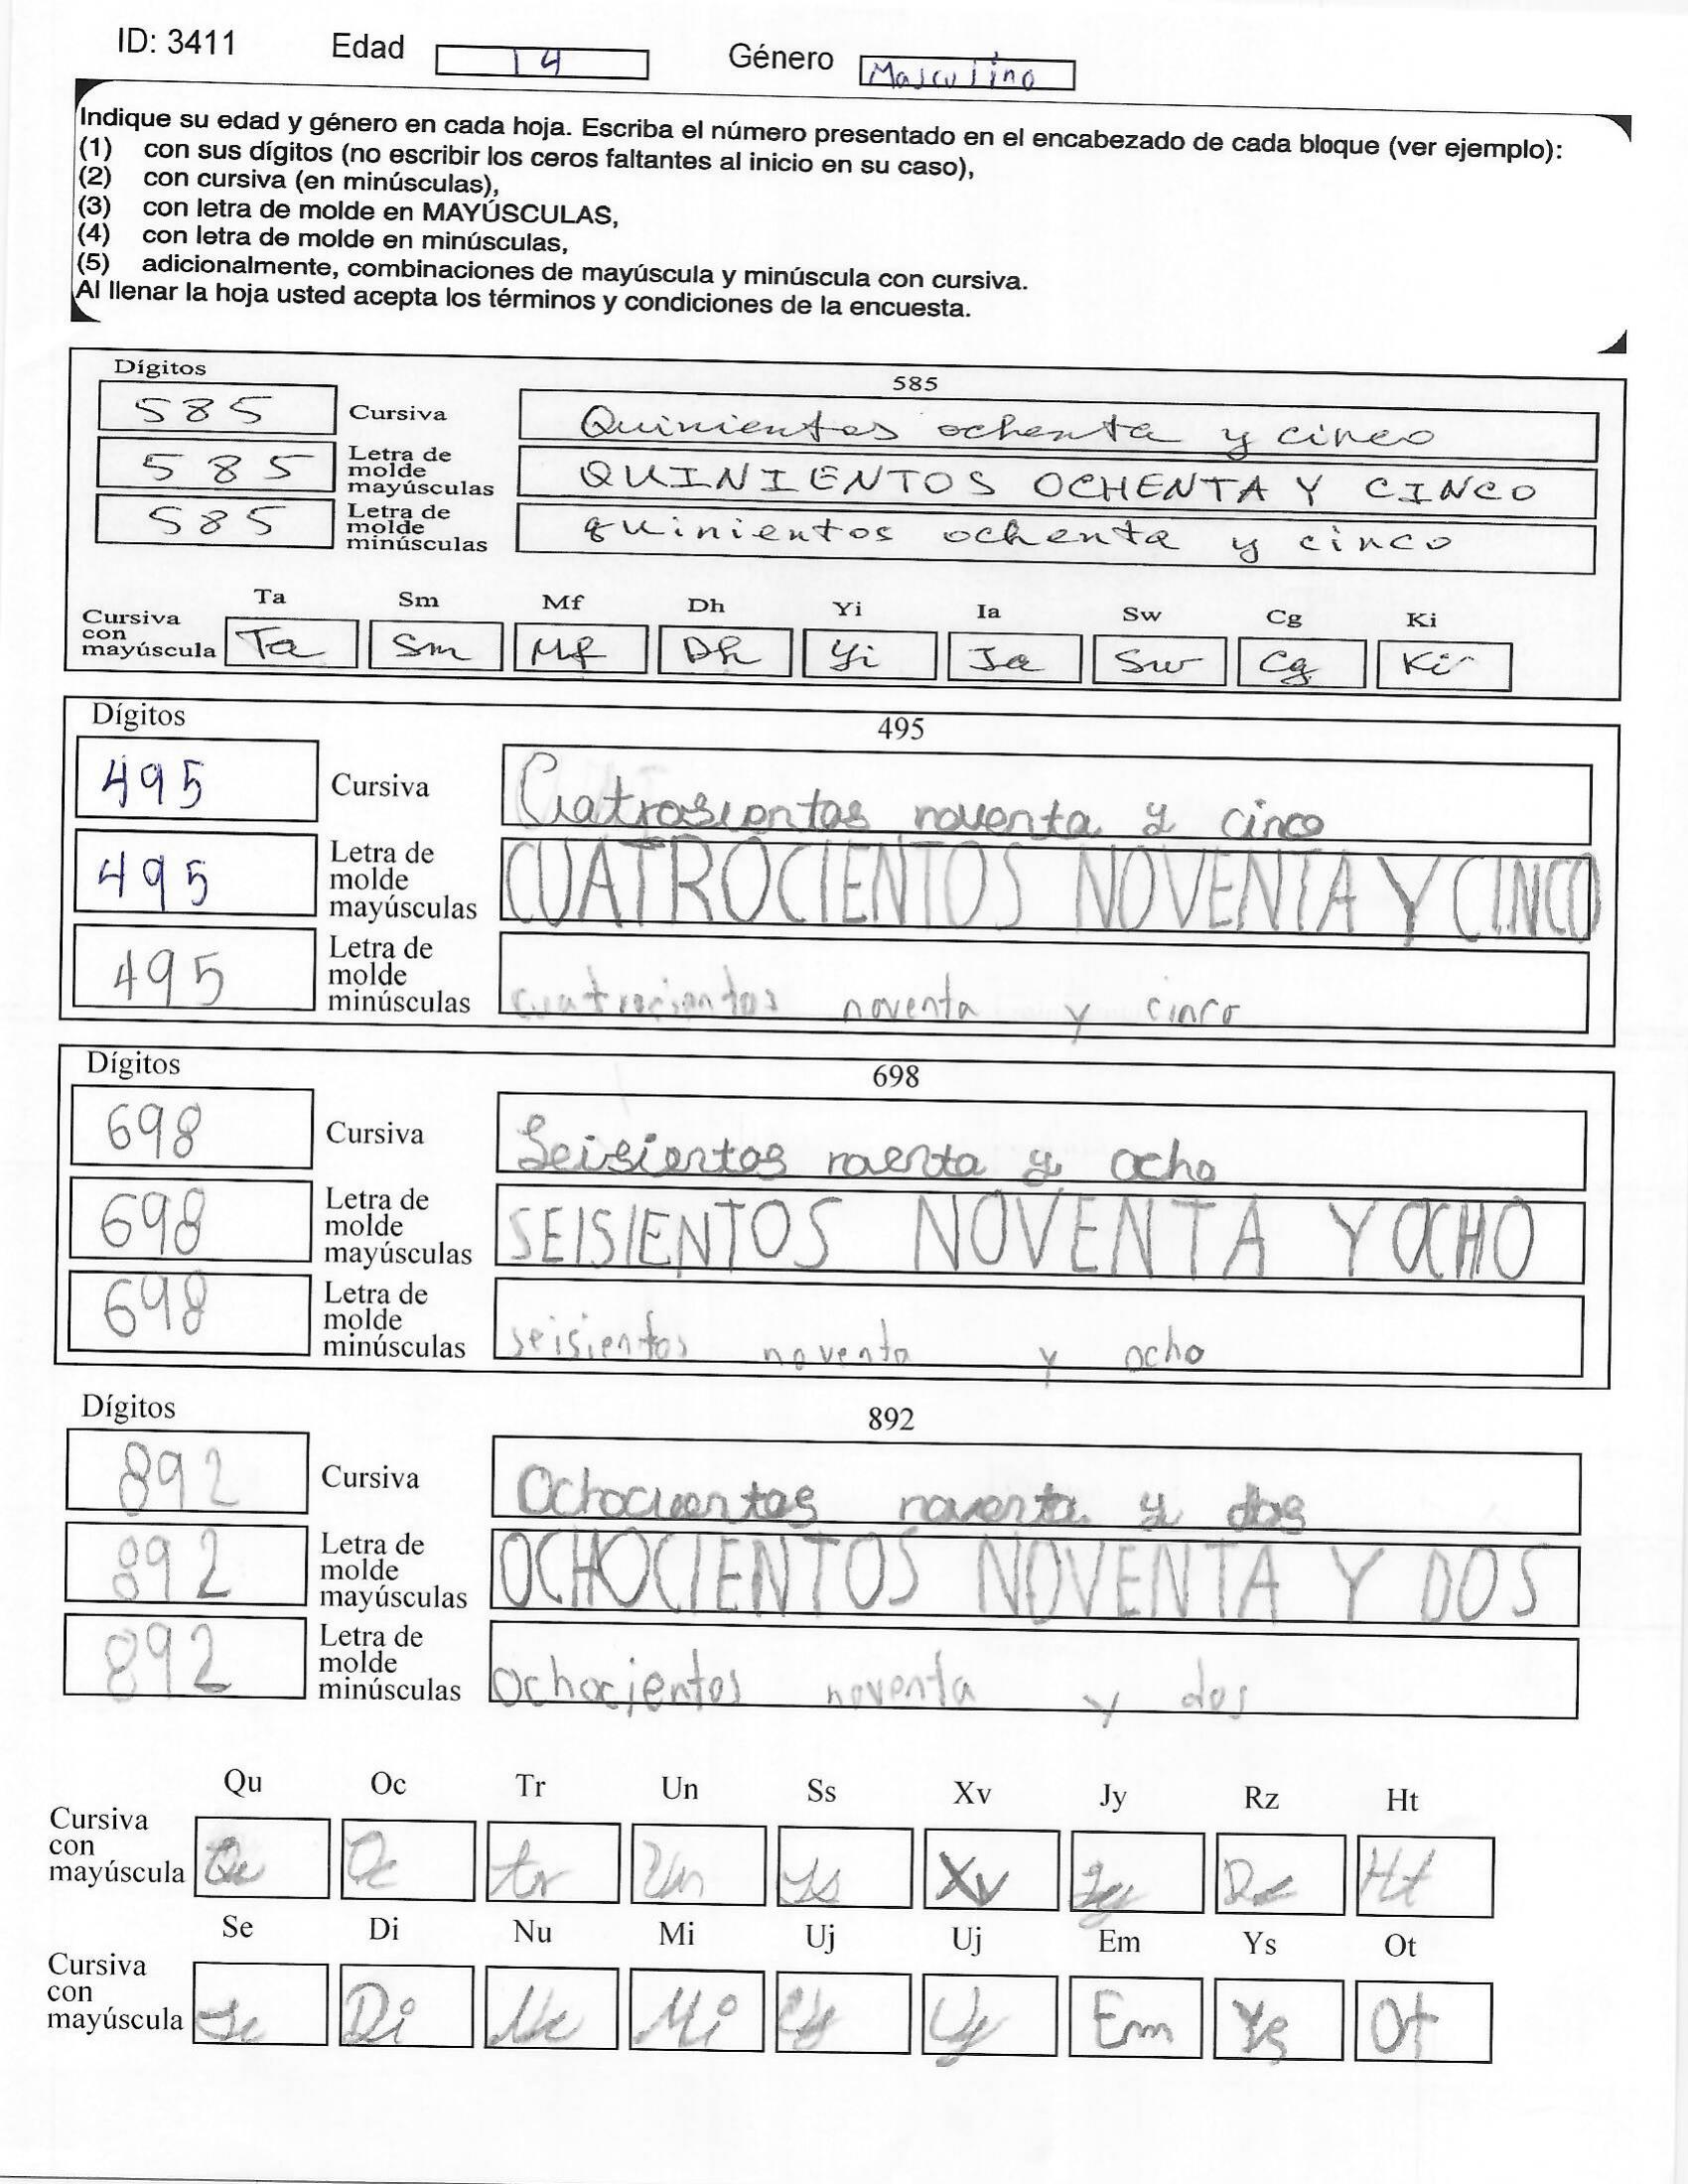 ID: 3411 Edad 14 Género Masculino
Indique su edad y género en cada hoja. Escriba el número presentado en el encabezado de cada bloque (ver ejemplo):
(1) con sus dígitos (no escribir los ceros faltantes al inicio en su caso),
(2) con cursiva (en minúsculas),
(3) con letra de molde en MAYÚSCULAS,
(4) con letra de molde en minúsculas,
(5) adicionalmente, combinaciones de mayúscula y minúscula con cursiva.
Al llenar la hoja usted acepta los términos y condiciones de la encuesta.
Dígitos 585
585 Cursiva Quinientos ochenta y cinco
585 Letra de molde mayúsculas QUINIENTOS OCHENTA Y CINCO
585 Letra de molde minúsculas quinientos ochenta y cinco
Ta Sm Mf Dh Yi Ia Sw Cg Ki
Cursiva con mayúscula Ta Sm Mf Dh Yi Ia Sw Cg Ki
Dígitos 495
495 Cursiva Cuatrosientos noventa y cinco
495 Letra de molde mayúsculas CUATROCIENTOS NOVENTA Y CINCO
495 Letra de molde minúsculas cuatrocientos noventa y cinco
Dígitos 698
698 Cursiva Seisientos noventa y ocho
698 Letra de molde mayúsculas SEISIENTOS NOVENTA Y OCHO
698 Letra de molde minúsculas seisientos noventa y ocho
Dígitos 892
892 Cursiva Ochocientos noventa y dos
892 Letra de molde mayúsculas OCHOCIENTOS NOVENTA Y DOS
892 Letra de molde minúsculas ochocientos noventa y dos
Qu Oc Tr Un Ss Xv Jy Rz Ht
Cursiva con mayúscula Qu Oc tr Un Ss Xv Jy Rz Ht
Se Di Nu Mi Uj Uj Em Ys Ot
Cursiva con mayúscula Se Di Nu Mi Uj Uj Em Ys Ot